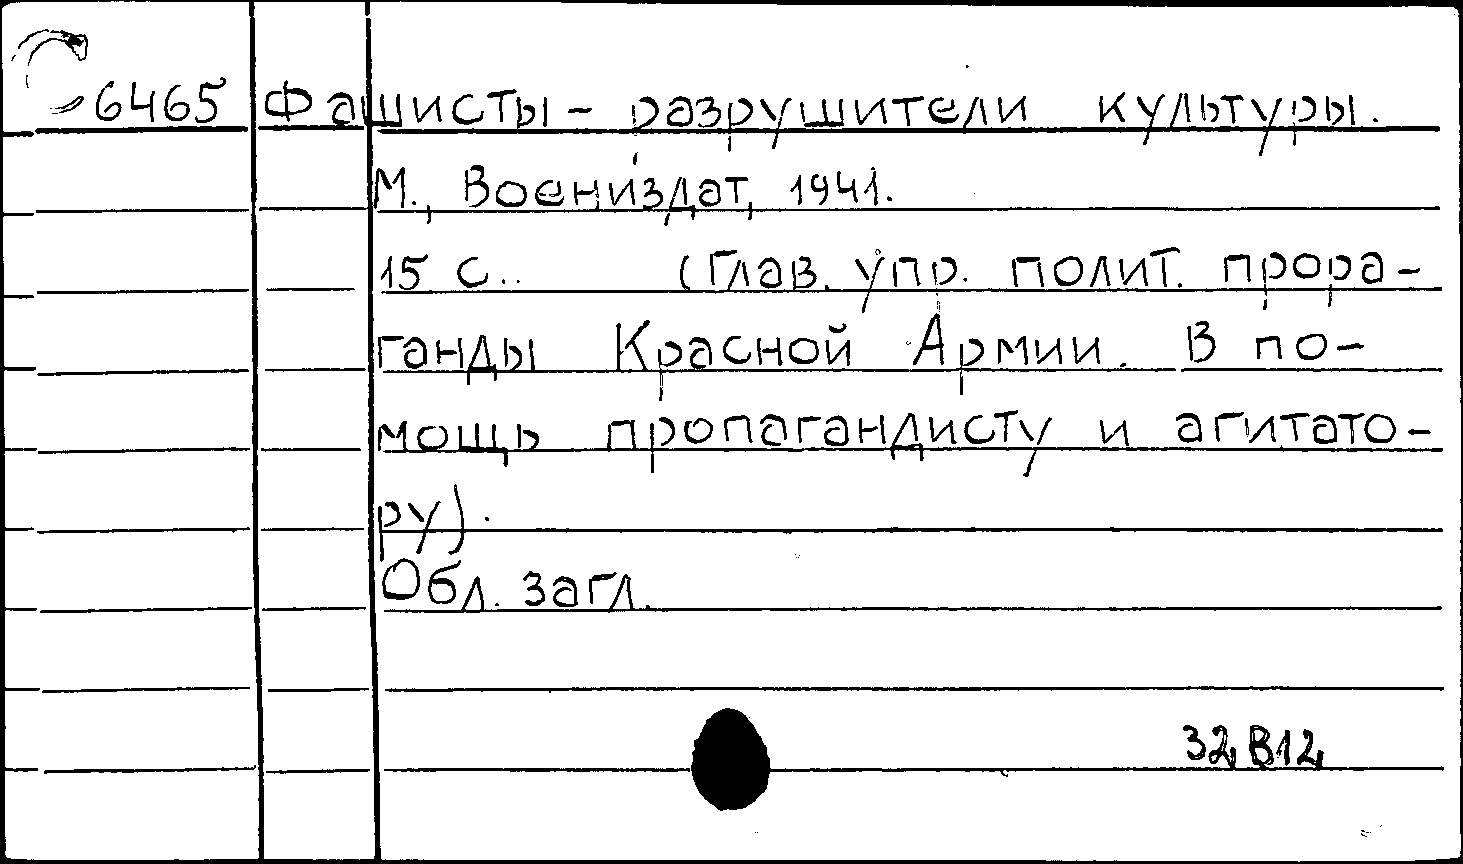 6465 Фашисты - разрушители культуры.
М., Воениздат, 1941.
15 с.. (Глав. упр. полит. прора-
ганды Красной Армии. В по-
мощь пропагандисту и агитато-
ру).
Обл. загл.
32 В12